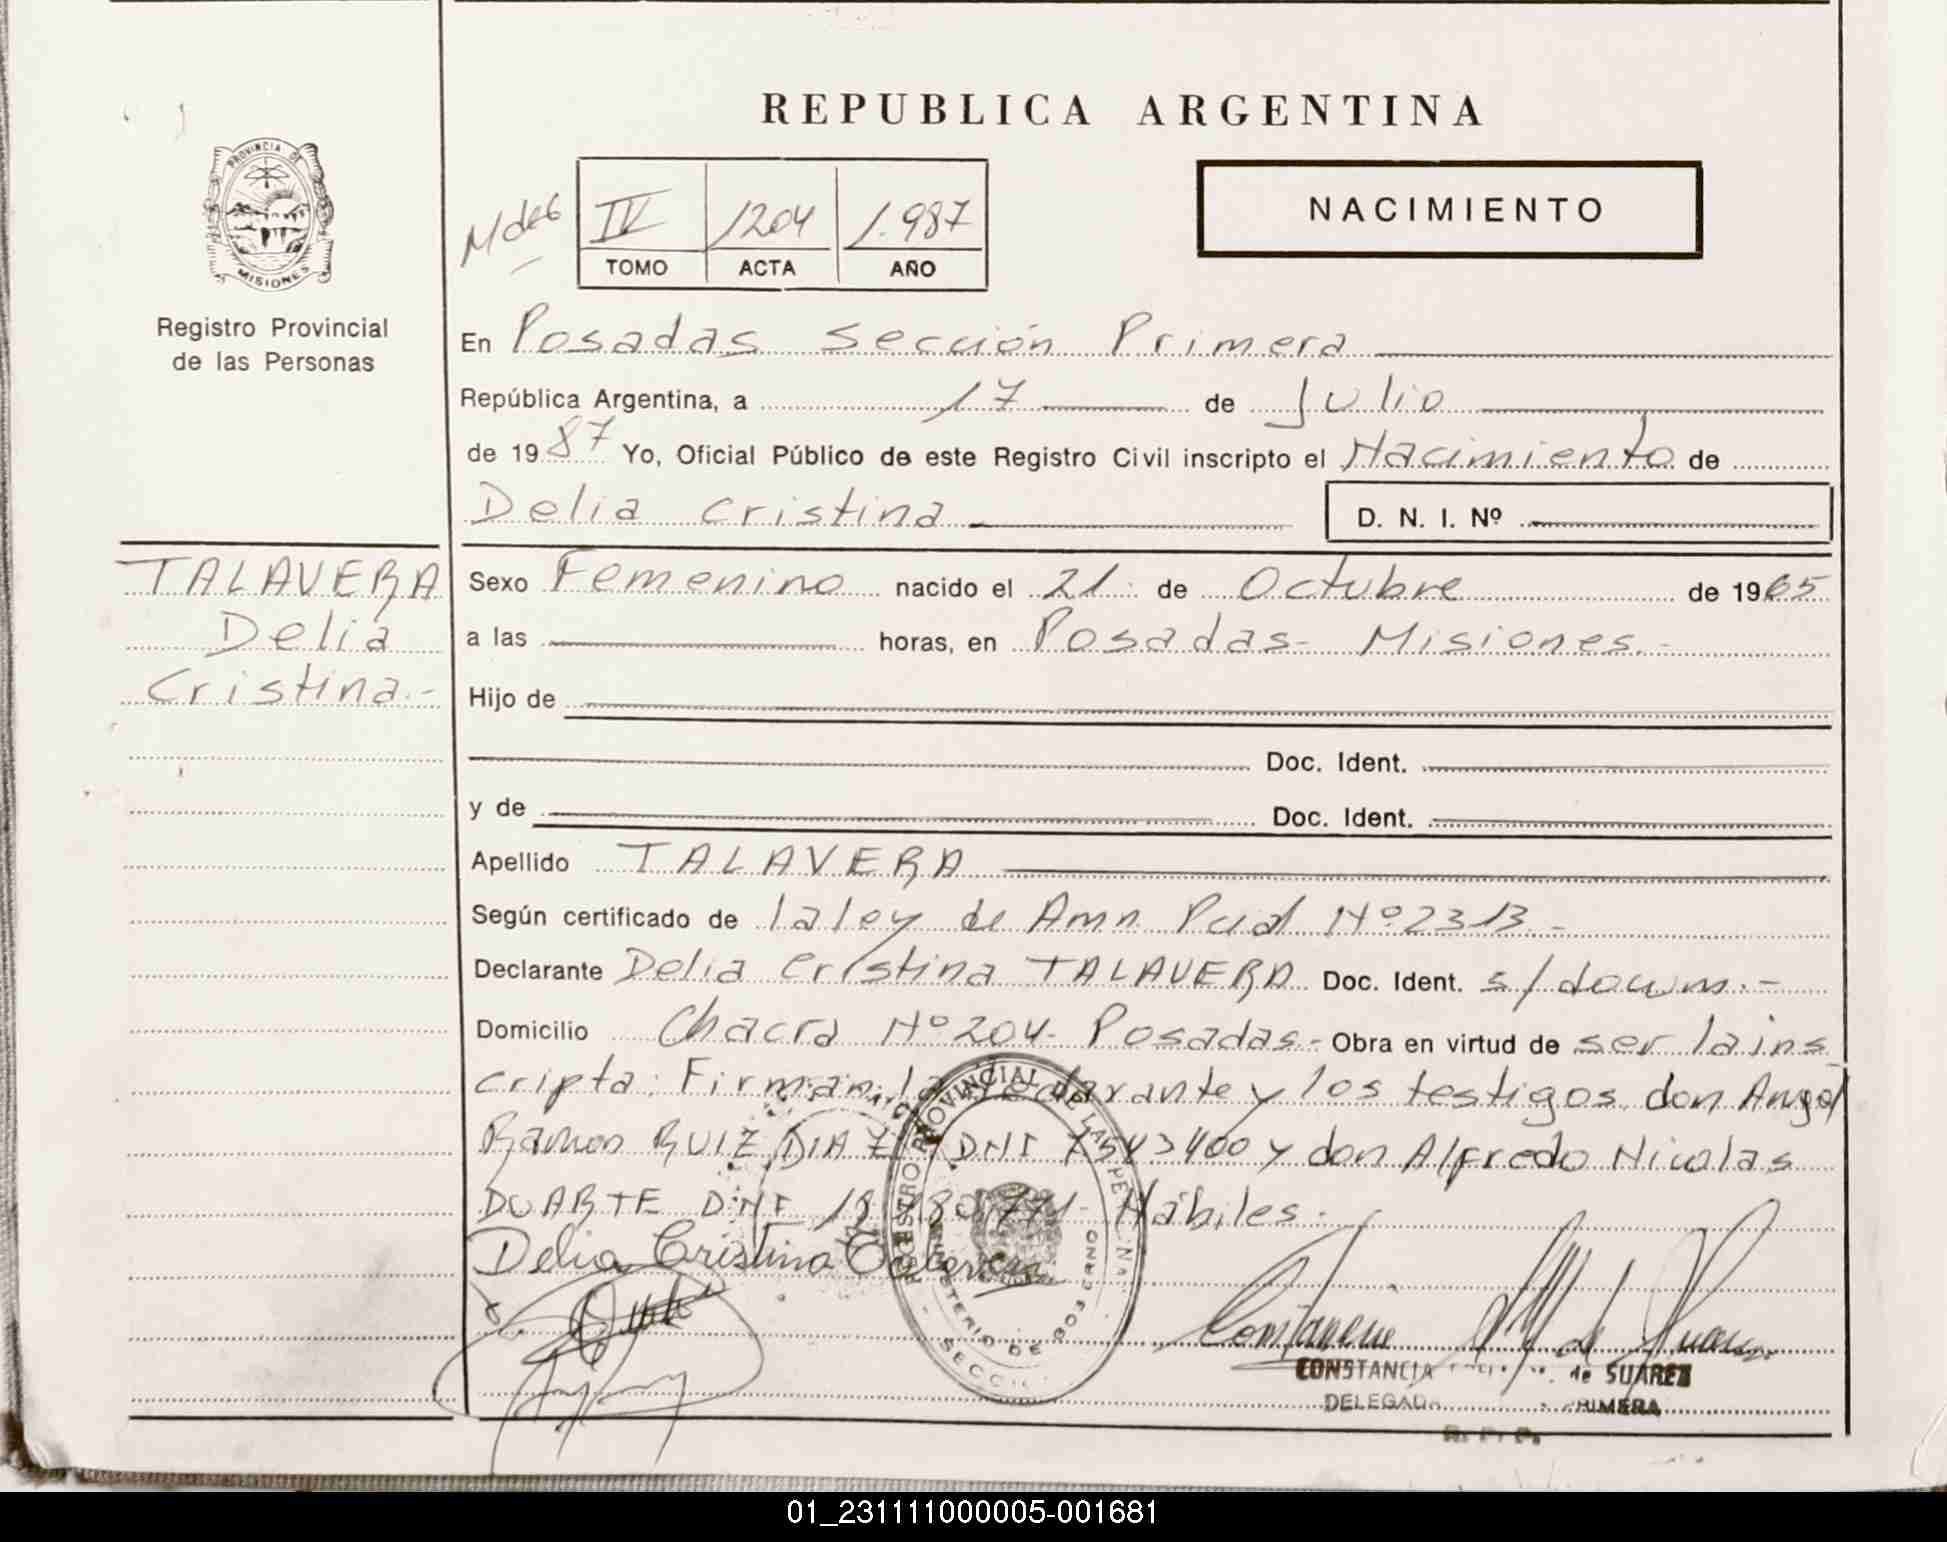 REPUBLICA ARGENTINA
PROVINCIA DE
MISIONES
Registro Provincial
de las Personas
IV 1204 1.987
TOMO ACTA AÑO
NACIMIENTO
En Posadas Sección Primera
República Argentina, a 17 de Julio
de 1987 Yo, Oficial Público de este Registro Civil inscripto el Nacimiento de
Delia Cristina D. N. I. Nº
TALAVERA
Delia
Cristina.-
Sexo Femenino nacido el 21 de Octubre de 1965
a las horas, en Posadas- Misiones.-
Hijo de
Doc. Ident.
y de Doc. Ident.
Apellido TALAVERA
Según certificado de la ley de Amn. Pcial Nº 2313.-
Declarante Delia Cristina TALAVERA Doc. Ident. s/docum.-
Domicilio Chacra Nº 204- Posadas- Obra en virtud de ser la ins
cripta: Firman la declarante y los testigos don Angel
Ramon RUIZ DIAZ DNI y don Alfredo Nicolas
DUARTE DNI Hábiles.
Delia Cristina Talavera
REGISTRO PROVINCIAL DE LAS PERSONAS
MINISTERIO DE GOBIERNO
Constancia de Suarez
CONSTANCIA de SUAREZ
DELEGADA PRIMERA
R. P. P.
01_231111000005-001681